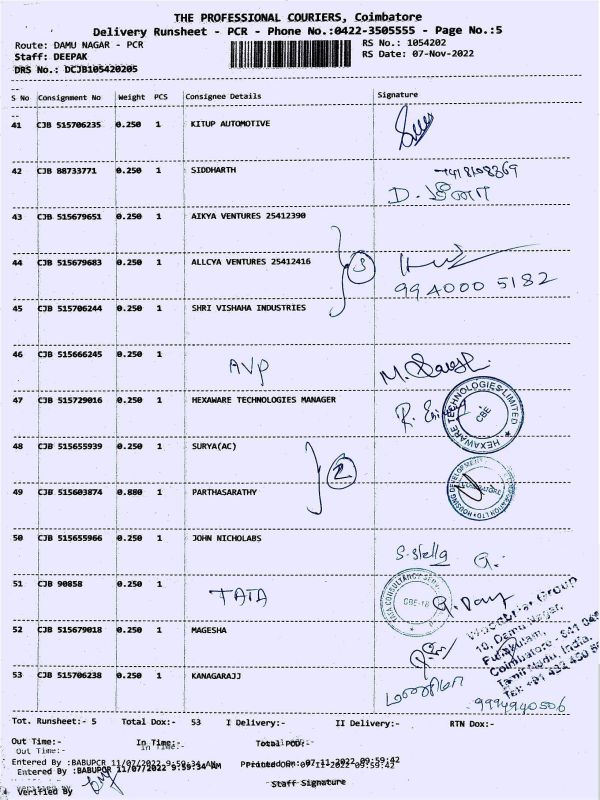 THE PROFESSIONAL COURIERS, Coimbatore
Delivery Runsheet - PCR - Phone No.:0422-3505555 - Page No.:5
Route: DAMU NAGAR - PCR RS No.: 1054202
Staff: DEEPAK RS Date: 07-Nov-2022
DRS No.: DCJB105420205
S No Consignment No Weight PCS Consignee Details Signature
41 CJB 515706235 0.250 1 KITUP AUTOMOTIVE
42 CJB 88733771 0.250 1 SIDDHARTH
43 CJB 515679651 0.250 1 AIKYA VENTURES 25412390
44 CJB 515679683 0.250 1 ALLCYA VENTURES 25412416 3
99 40000 5182
45 CJB 515706244 0.250 1 SHRI VISHAHA INDUSTRIES
46 CJB 515666245 0.250 1 AVP
47 CJB 515729016 0.250 1 HEXAWARE TECHNOLOGIES MANAGER
HEXAWARE TECHNOLOGIES LIMITED CBE
48 CJB 515655939 0.250 1 SURYA(AC) 2
49 CJB 515603874 0.880 1 PARTHASARATHY
50 CJB 515655966 0.250 1 JOHN NICHOLABS S. stella
51 CJB 90858 0.250 1 TATA
TATA CONSULTANCY SERV CBE-18
52 CJB 515679018 0.250 1 MAGESHA
Group
10, Damu Nagar,
Coimbatore - 641 045
Tamil Nadu, India.
53 CJB 515706238 0.250 1 KANAGARAJJ
9994940506
Tot. Runsheet:- 5 Total Dox:- 53 I Delivery:- II Delivery:- RTN Dox:-
Out Time:- In Time:- Total POD:-
Out Time:- In Time:-
Entered By :BABUPCR 11/07/2022 9:59:34 AM Printed On: 07-11-2022 09:59:42
Entered By :BABUPCR 11/07/2022 9:59:34 AM Printed On: 07-11-2022 09:59:42
Staff Signature
Verified By
Verified By